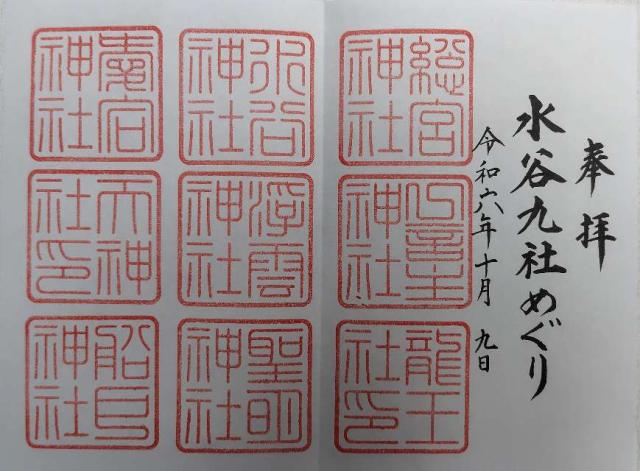 奉拝
水谷九社めぐり
令和六年十月 九日
総宮神社
神社
龍王社印
水谷神社
浮雲神社
聖明神社
愛宕神社
天神社印
船 神社